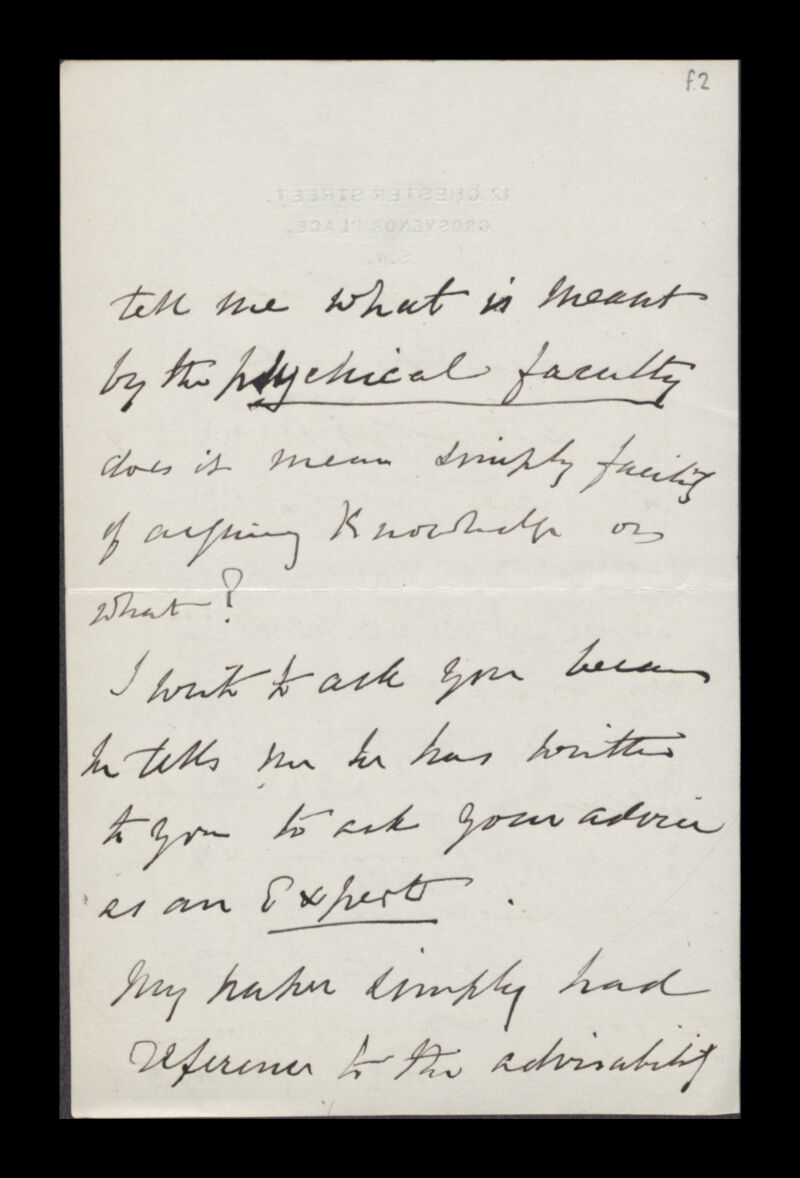 f.2
12, CHESTER STREET,
GROSVENOR PLACE,
S.W.
tell me what is meant
by the psychical faculty
does it mean simply facility
of acquiring Knowledge or
what?
I write to ask you because
he tells me he has written
to you to ask your advice
as an Expert.
My paper simply had
reference to the advisability